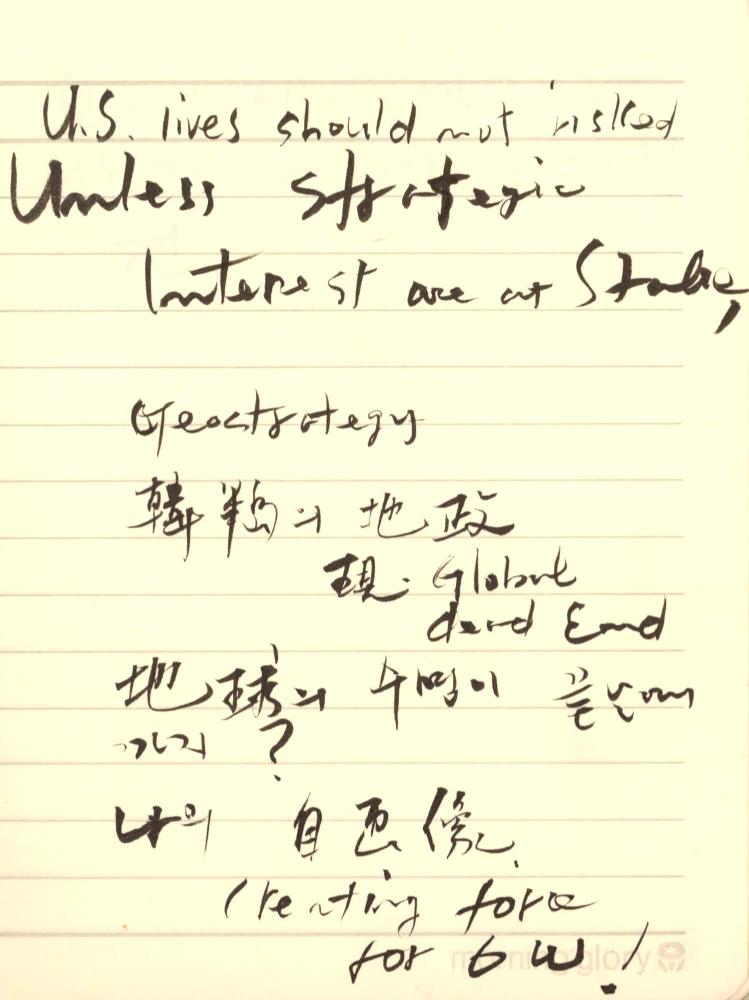 U.S. lives should not risked
Unless strategic
Interest are at Stake,
Geostrategy
韓半島의 地政
現. Global
dead End
地球의 수명이 끝날때
까지 ?
나의 自画像
Creating force
for 6 W!
morning glory